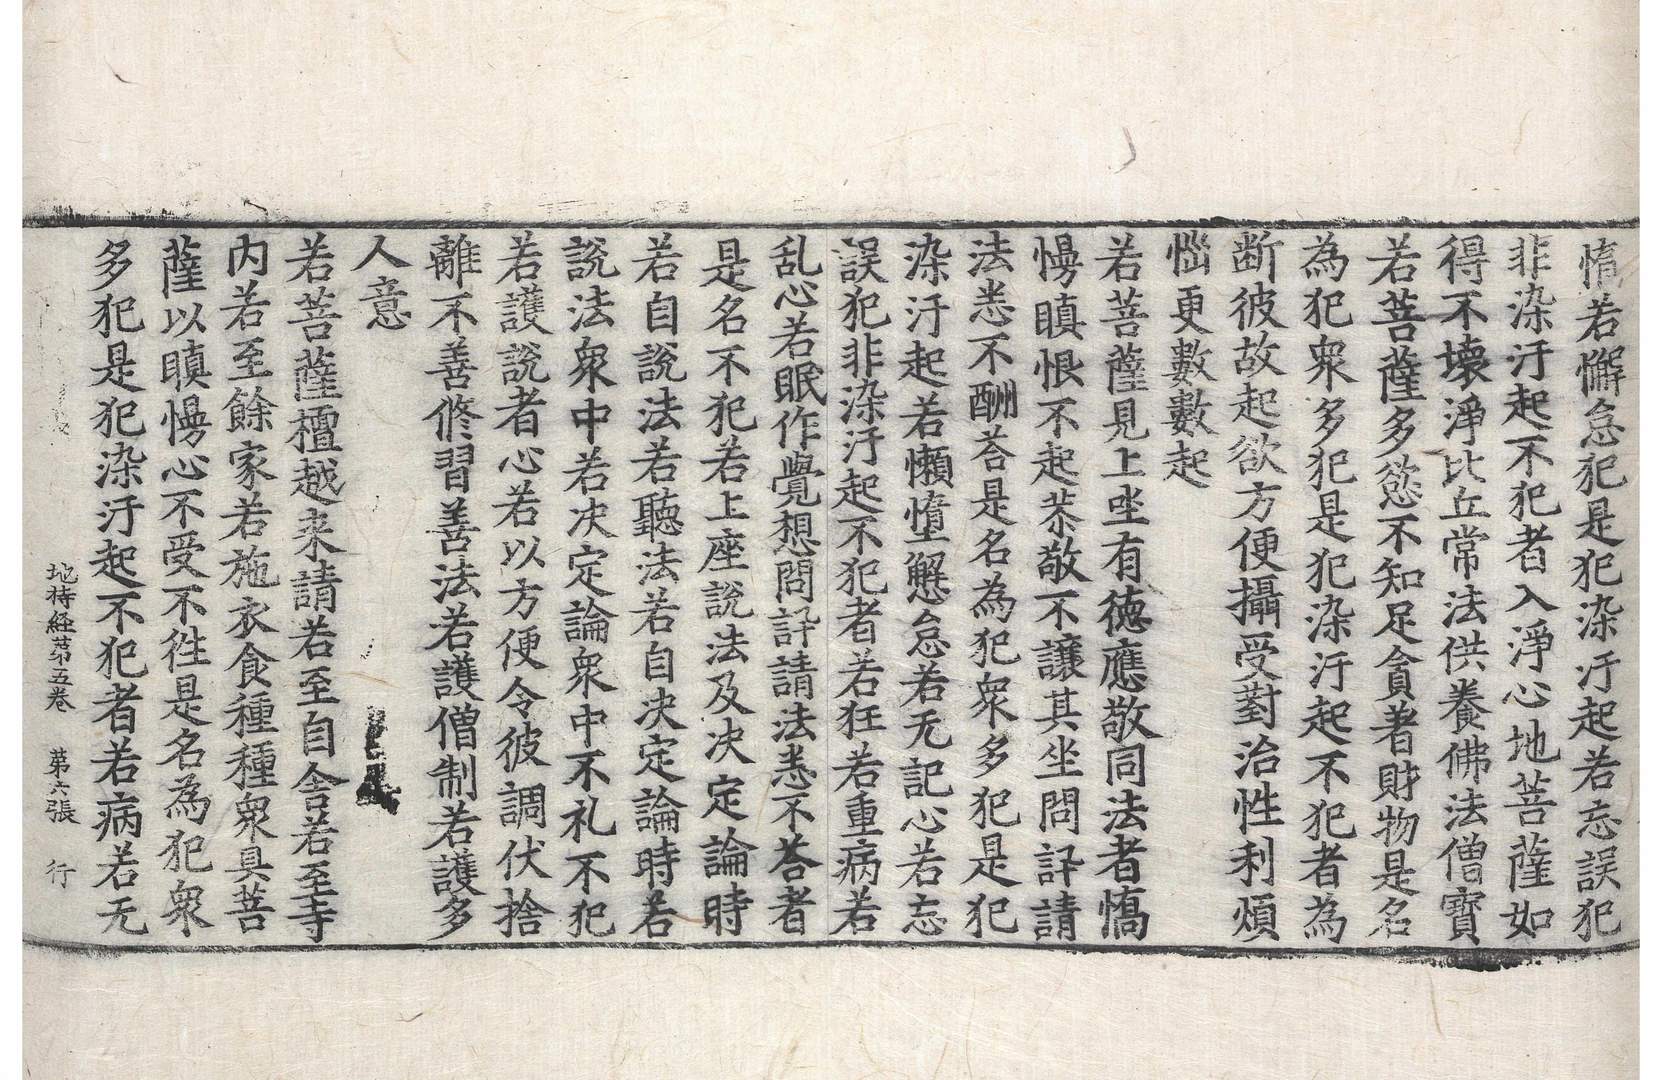 惰若懈怠犯是犯染汙起若忘誤犯
非染汙起不犯者入淨心地菩薩如
得不壞淨比丘常法供養佛法僧寶
若菩薩多慾不知足貪著財物是名
為犯衆多犯是犯染汙起不犯者為
断彼故起欲方便攝受對治性利煩
惱更數數起
若菩薩見上坐有徳應敬同法者憍
慢瞋恨不起恭敬不讓其坐問訊請
法悉不酬荅是名為犯衆多犯是犯
染汙起若懶惰懈怠若无記心若忘
誤犯非染汙起不犯者若狂若重病若
乱心若眠作覺想問訊請法悉不荅者
是名不犯若上座說法及决定論時
若自說法若聽法若自决定論時若
說法衆中若决定論衆中不礼不犯
若護說者心若以方便令彼調伏捨
離不善修習善法若護僧制若護多
人意
若菩薩檀越来請若至自舍若至寺
内若至餘家若施衣食種種衆具菩
薩以瞋慢心不受不徃是名為犯衆
多犯是犯染汙起不犯者若病若无
地持経苐五卷 苐六張 行